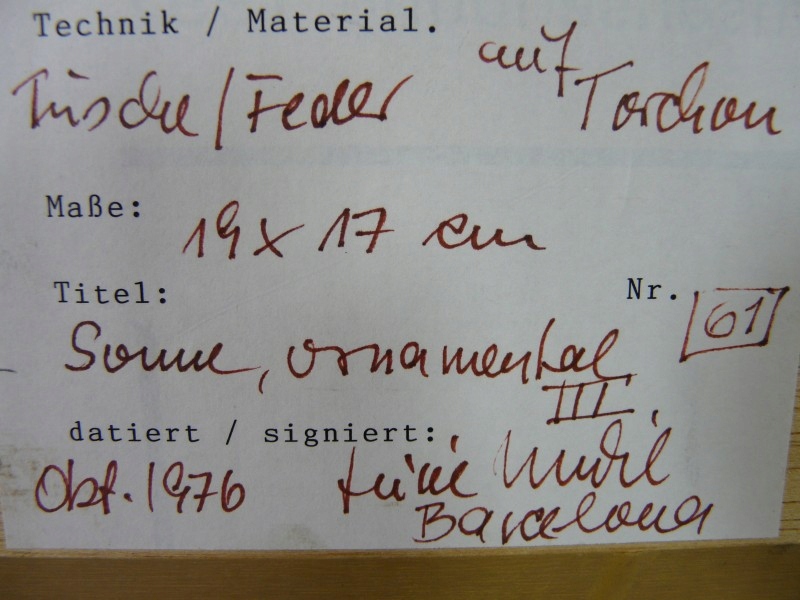 Technik / Material.
Tusche/Feder auf Torchon
Maße: 19 x 17 cm
Titel: Nr. 61
Sonne, ornamental
III.
datiert / signiert:
Okt. 1976
Barcelona